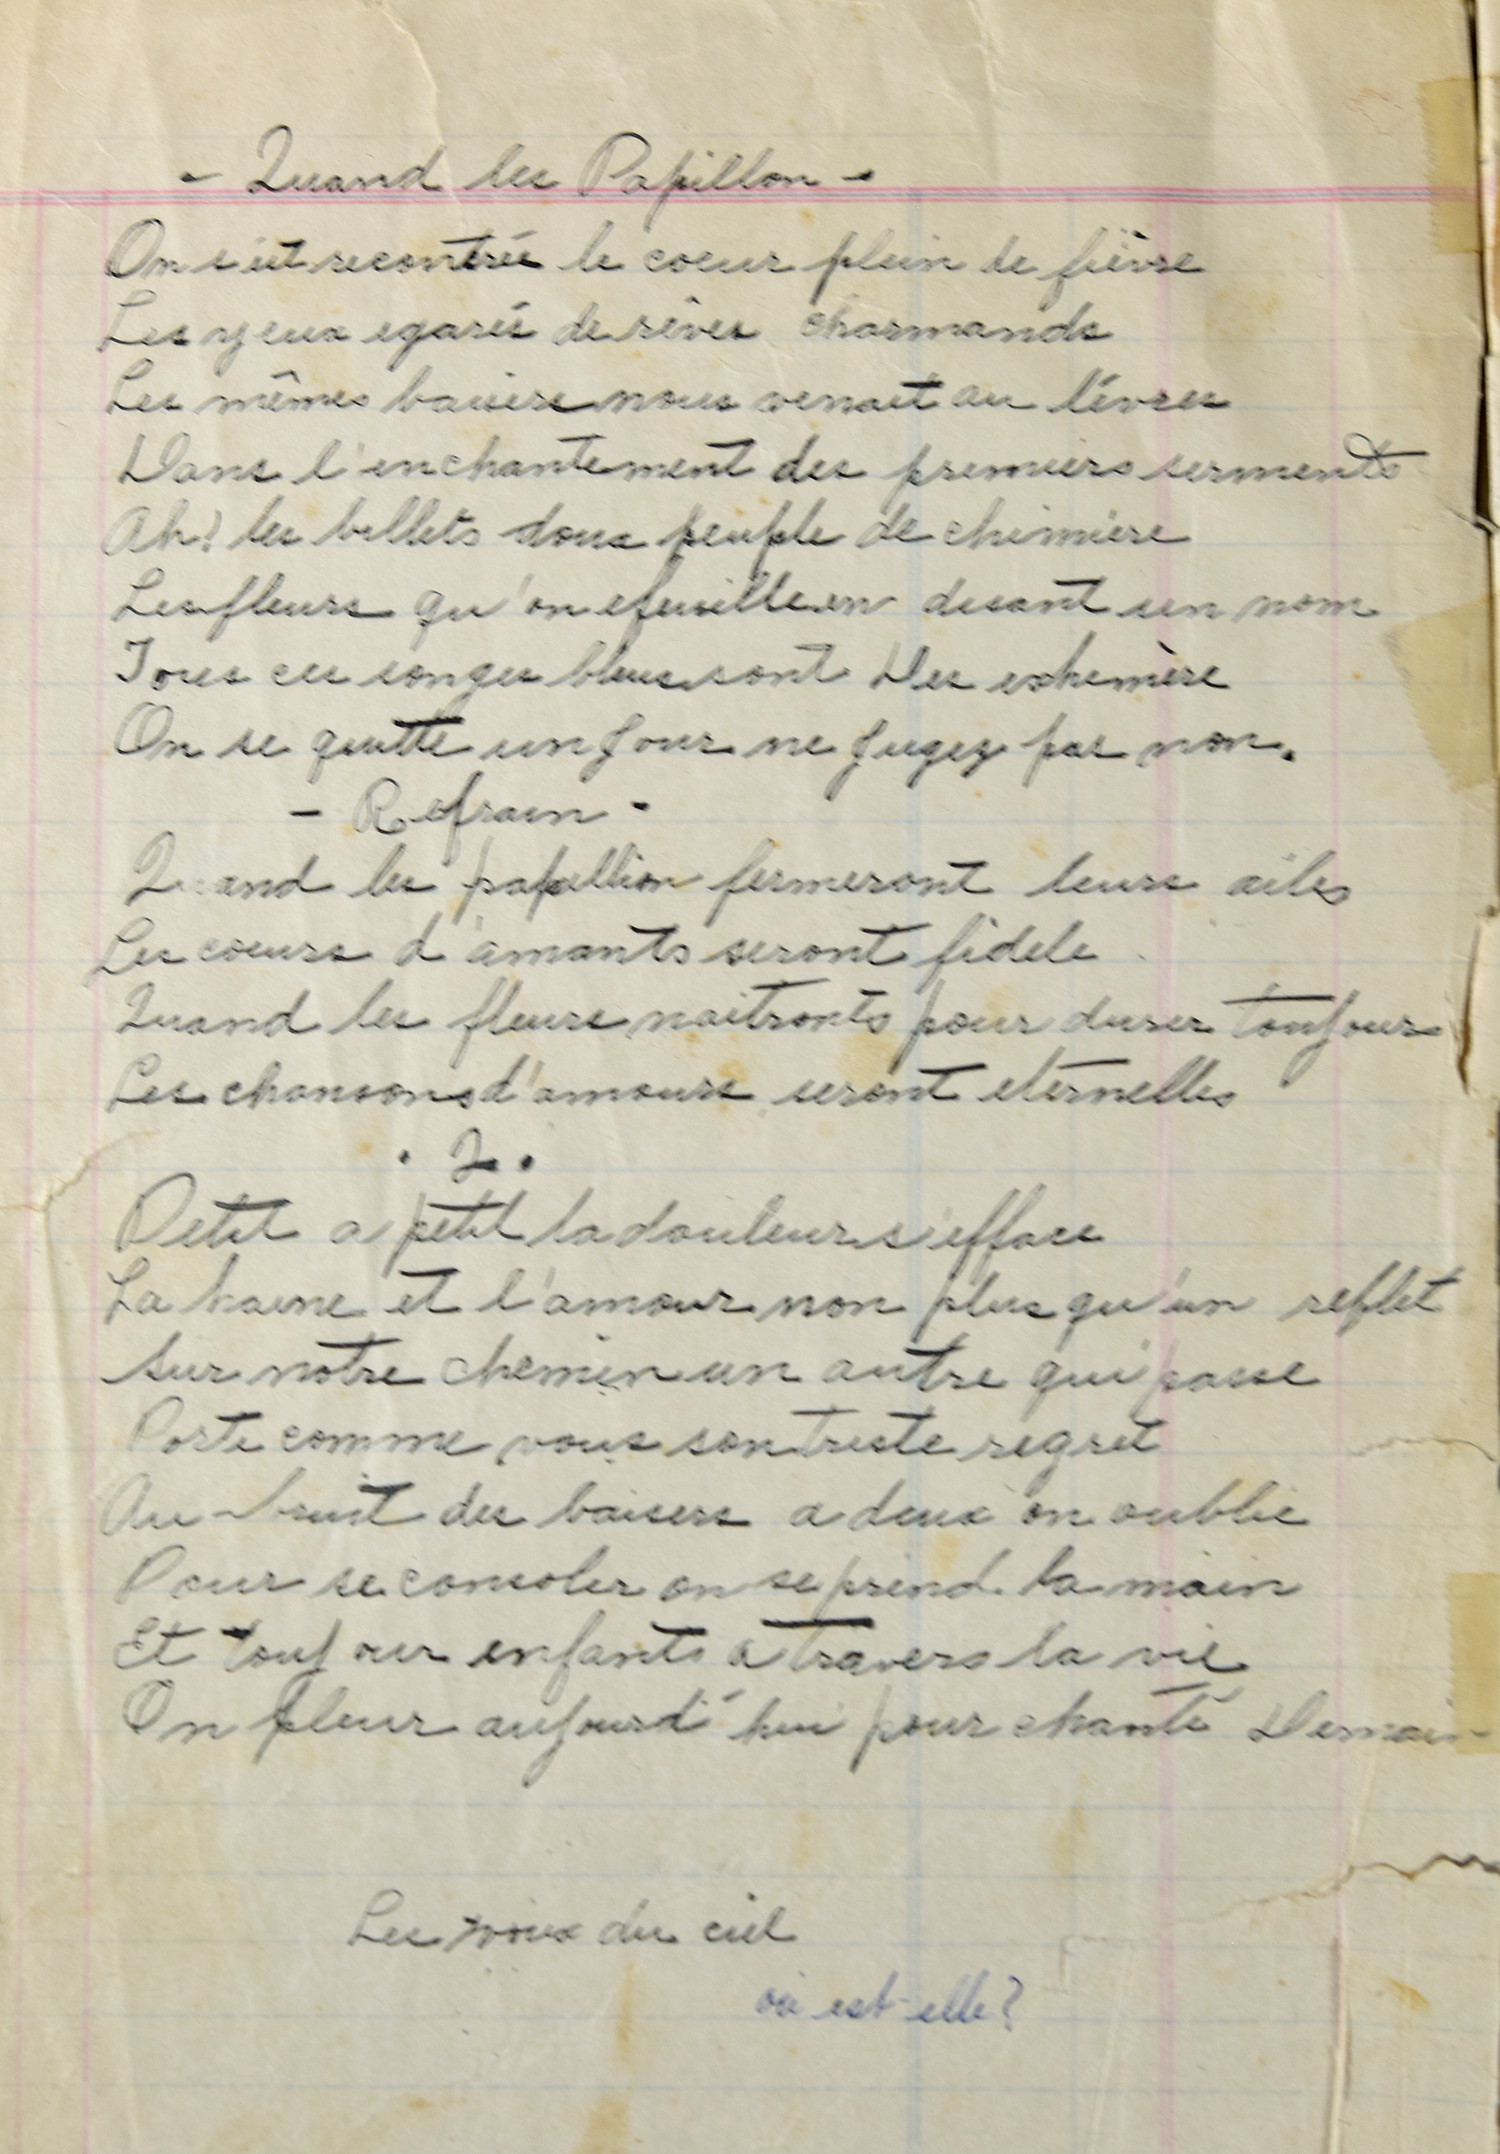 - Quand les Papillon -
On s'ést recontrés le coeur plein de fièvre
Les yeux egarés de rêves charmands
Les mêmes baisers nous venait au lévres
Dans l'enchantement des premiers serments
Ah! les billets doux peuple de chimière
Les fleurs qu'on efeuille en disant un nom
Tous ces songes bleus sont Des exhemère
On se quitte un jour ne jugez pas non.
- Refrain -
Quand les papellion fermeront leurs ailes
Les coeurs d'amants seront fidele
Quand les fleurs naitronts pour durer toujours
Les chansons d'amours seront eternelles
. 2 .
Petit a petit la douleur s'efface
La haine et l'amour non plus qu'un reflet
Sur notre chemin un autre qui passe
Porte comme vous son triste regret
Au bruit des baisers a deux on oublie
Pour se consoler on se prend la main
Et toujour enfants a travers la vie
On pleur aujourd'hui pour chanté Demain
Les voix du ciel
où est-elle?